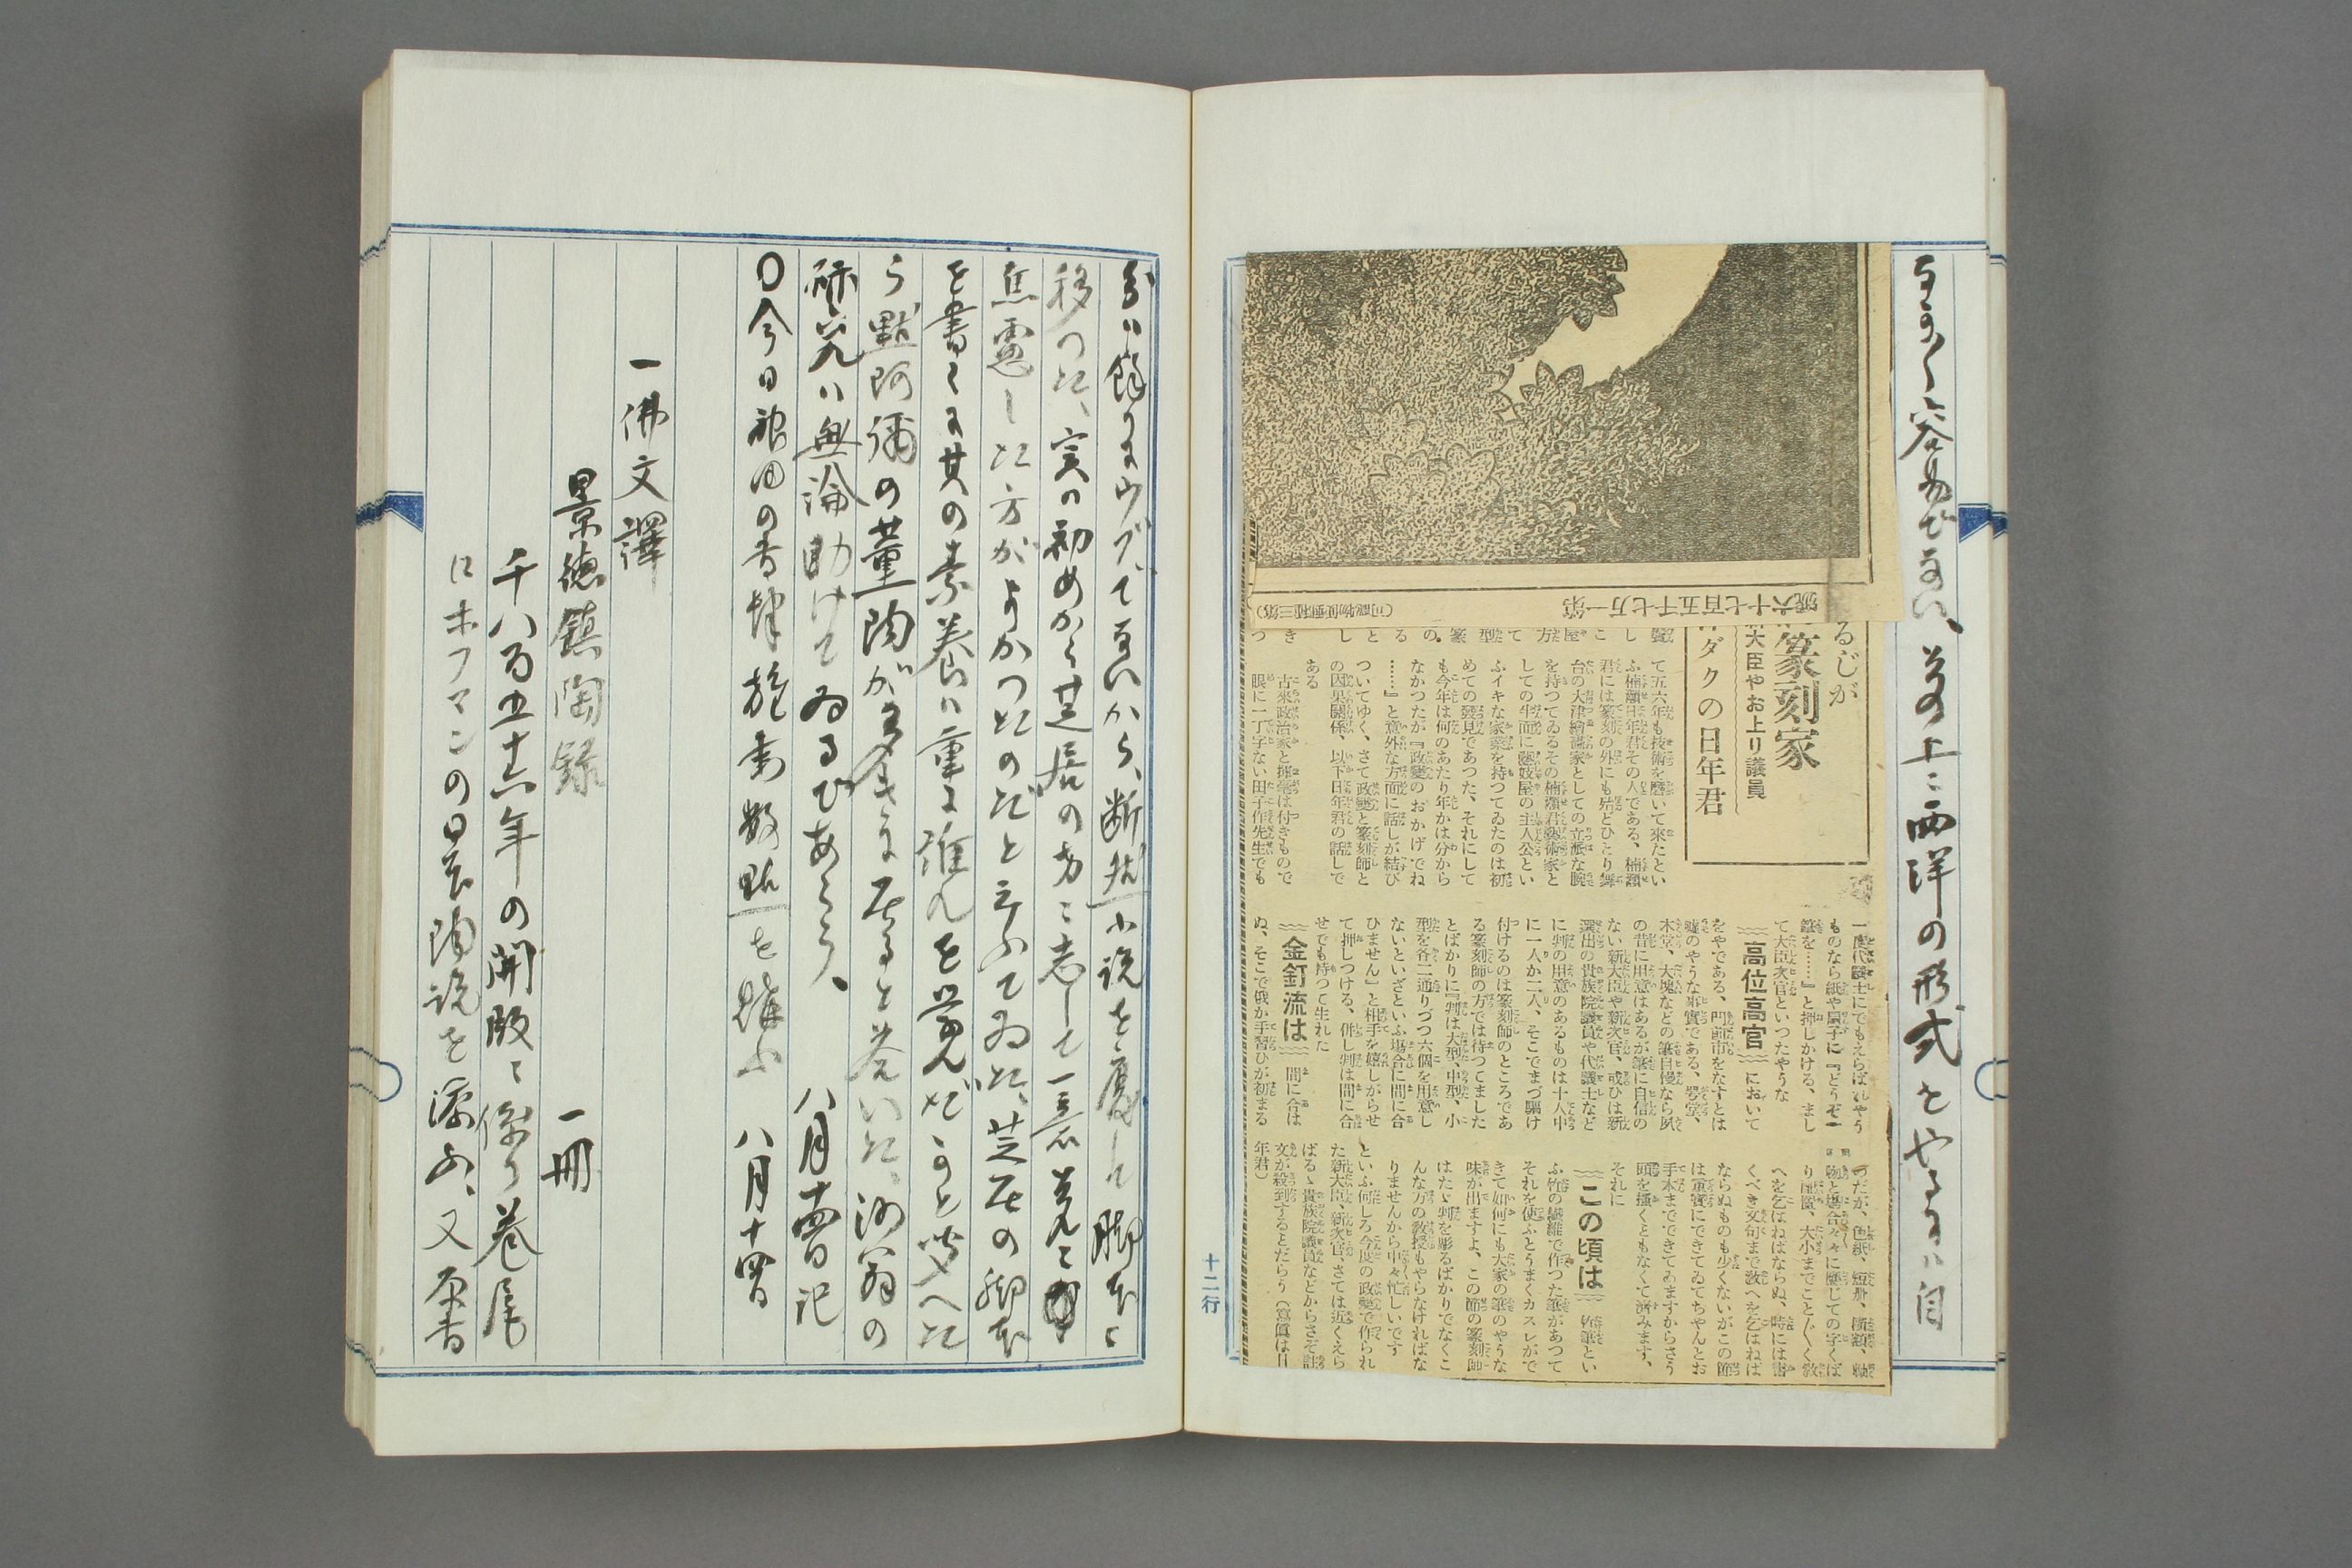 なか〱容易でない、その上ニ西洋の形式をやるには自
第一万七千五百七十六號
(第三種郵便物認可)
るじが
篆刻家
新大臣やお上り議員
ダクの日年君
て五六年も技術を磨いて來たとい
ふ楠瀨日年君その人である、楠瀨
君には篆刻の外にも殆どひとり舞
台の大津繪畫家としての立派な腕
を持つてゐるその楠瀨君藝術家と
しての半面に藝妓屋の主人公とい
ふイキな家業を持つてゐたのは初
めての發見であつた、それにして
も今年は何のあたり年かは分から
なかつたが『政變のおかげでね
……』と意外な方面に話しが結び
ついてゆく、さて政變と篆刻師と
の因果關係、以下日年君の話しで
ある
古來政治家と揮毫は付きもので
眼に一丁字ない田子作先生でも
一度代議士にでもえらばれやう
ものなら紙や扇子に『どうぞ一
筆を……』と押しかける、まし
て大臣次官といつたやうな
高位高官 において
をやである、門前市をなすとは
嘘のやうな事實である、咢堂、
木堂、大塊などの筆自慢なら夙
の昔に用意はあるが筆に自信の
ない新大臣や新次官、或ひは新
選出の貴族院議員や代議士など
に判の用意のあるものは十人中
に一人か二人、そこでまづ驅け
付けるのは篆刻師のところであ
る篆刻師の方では待つてました
とばかりに『判は大型、中型、小
型を各二通りづつ六個を用意し
ないといざといふ場合に間に合
ひません』と相手を嬉しがらせ
て押しつける、併し判は間に合
せでも持つて生れた
金釘流は 間に合は
ぬ、そこで俄か手習ひが初まる
のだが、色紙、短册、橫額、軸
物と場合々々に應じての字くば
り配置、大小までことごとく敎
へを乞はねばならぬ、時には書
くべき文句まで敎へを乞はねば
ならぬものも少くないがこの節
は重寶にできてゐてちやんとお
手本までできてゐますからさう
頭を搔くともなくて濟みます、
それに
この頃は 竹筆とい
ふ竹の纖維で作つた筆があつて
それを使ふとうまくカスレがで
きて如何にも大家の筆のやうな
味が出ますよ、この節の篆刻師
はたゞ判を彫るばかりでなくこ
んな方の敎授もやらなければな
りませんから中々忙しいです
といふ何しろ今度の政變で作られ
た新大臣、新次官、さては近くえら
ばるゝ貴族院議員などからさぞ註
文が殺到するとだらう(寫眞は日
年君)
十二行
分は餘りにウブで
ないから、断然小説を廢して脚本に
移つた、実は初めから芝居の方に志して一意
焦慮した方がよかつたのだと云ふてゐた、芝居の脚本
を書くに其の素養は重に誰れを学んだかと問へた
ら默阿彌の薫陶が
と答いた、
は無論助けてゐるであらう、
八月十四日記
〇今日
の書肆
数點を購ふ
八月十四日
一佛文譯
景德鎮陶録
一冊
千八百五十六年の開版に係り巻尾
にホフマンの日本陶説を添ふ、又原書